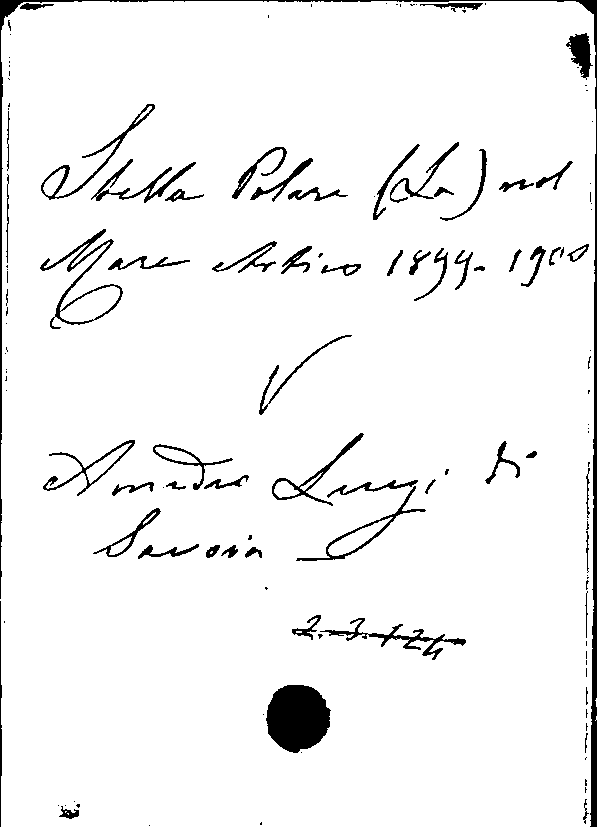 Stella Polare (La) nel
Mare Artico 1899-1900
V
Amedeo Luigi di
Savoia
2.3.124